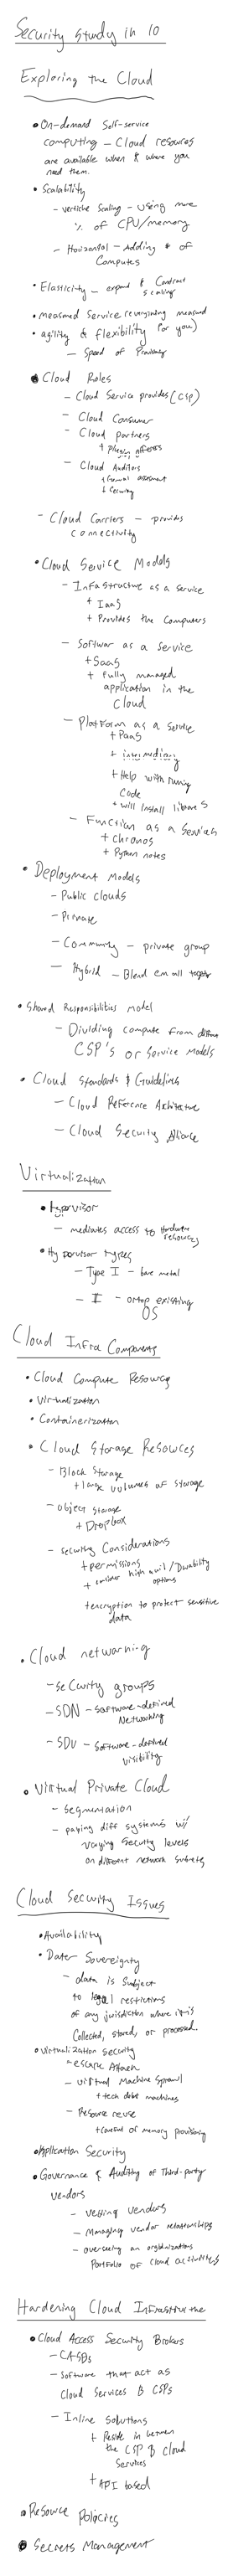 Security Study in 10
Exploring the Cloud
• On-demand Self-service
computing - Cloud resources
are available when & where you
need them.
• Scalability
- verticle Scaling - using more
% of CPU/memory
- Horizontal - Adding # of
Computes
• Elasticity - expand & Contract
scaling
• measured service
• agility & flexibility (for you)
- Speed of
• Cloud Roles
- Cloud Service provides (CSP)
- Cloud Consumer
- Cloud partners
+
- Cloud Auditors
+
+ Security
- Cloud Carriers - provides
connectivity
• Cloud Service Models
- Infastructure as a service
+ IaaS
+ Provides the Computers
- Softwar as a Service
+ SaaS
+ fully managed
application in the
Cloud
- Platform as a Service
+ PaaS
+ intermediary
+ Help with runing
Code
+ will Install
- Function as a Services
+ Chronos
+ Python notes
• Deployment Models
- Public clouds
- Private
- Community - private group
- Hybrid - Blend em all
• Shared Responsibilities model
- Dividing compute from
CSP's or Service Models
• Cloud Standards & Guidelines
- Cloud Reference Architecture
- Cloud Security Alliance
Virtualization
• Hypervisor
- mediates access to Hardware
resources
• Hypervisor types
- Type I - bare metal
- II - ontop existing
OS
Cloud Infra Components
• Cloud Compute Resources
• Virtualization
• Containerization
• Cloud Storage Resources
- Block Storage
+ large volumes of storage
- object storage
+ Dropbox
- security Considerations
+ permissions
+ consider high avail/Durability
options
+ encryption to protect sensitive
data
• Cloud networking
- security groups
- SDN - Software-defined
Networking
- SDV - Software-defined
visibility
• Virtual Private Cloud
- Segmentation
- diff systems w/
varying security levels
on different network subnets
Cloud Security Issues
• Availability
• Data Sovereignty
- data is subject
to legal restrictions
of any jurisdiction where it is
Collected, stored, or processed.
• Virtualization Security
- escape Attack
- virtual Machine Sprawl
+ tech debt machines
- Resource reuse
+ careful of memory provisioning
• Application Security
• Governance & Auditing of Third-party
vendors
- vetting vendors
- Managing vendor relationships
- overseeing an organizations
Portfolio of cloud activities
Hardening Cloud Infrastructure
• Cloud Access Security Brokers
- CASBs
- Software that act as
Cloud Services & CSPs
- Inline Solutions
+ Reside in between
the CSP & Cloud
Services
+ API based
• Resource Policies
• Secrets Management